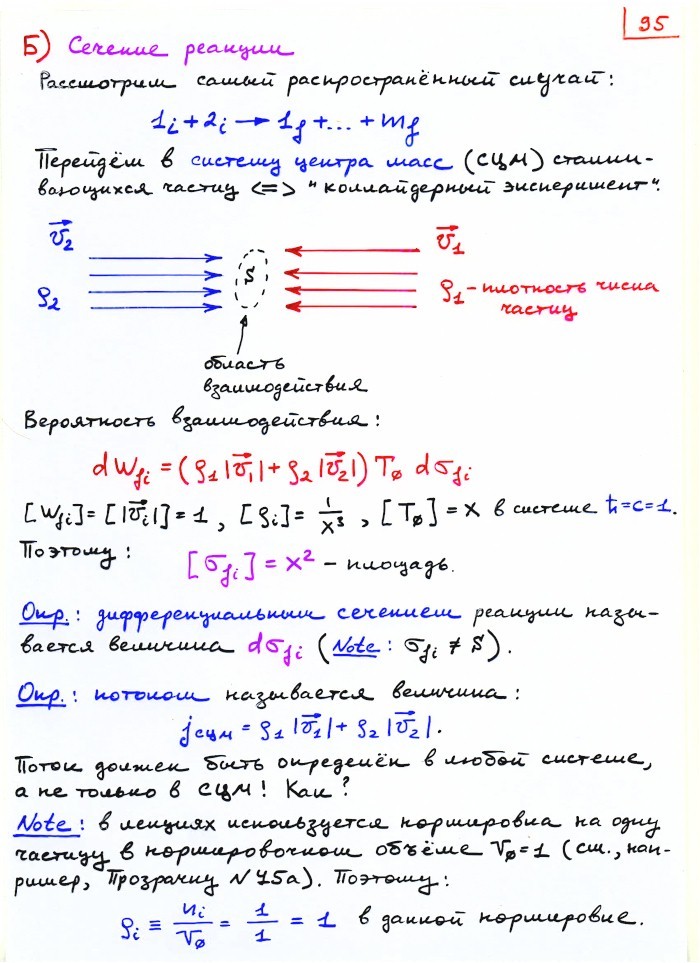 95
Б) Сечение реакции
Рассмотрим самый распространённый случай:
1ᵢ + 2ᵢ → 1_f + ... + m_f
Перейдём в систему центра масс (СЦМ) сталки-
вающихся частиц <=> "коллайдерный эксперимент".
v⃗₂ v⃗₁
S
ρ₂ ρ₁ - плотность числа
частиц
область
взаимодействия
Вероятность взаимодействия:
dW_fi = (ρ₁|v⃗₁| + ρ₂|v⃗₂|) T_ø dσ_fi
[W_fi] = [|v⃗ᵢ|] = 1, [ρᵢ] = 1/x³, [T_ø] = x в системе ħ=c=1.
Поэтому: [σ_fi] = x² – площадь.
Опр.: дифференциальным сечением реакции назы-
вается величина dσ_fi (Note: σ_fi ≠ S).
Опр.: потоком называется величина:
j_сцм = ρ₁|v⃗₁| + ρ₂|v⃗₂|.
Поток должен быть определён в любой системе,
а не только в СЦМ! Как?
Note: в лекциях используется нормировка на одну
частицу в нормировочном объёме V_ø=1 (см., нап-
ример, Прозрачку N75а). Поэтому:
ρᵢ ≡ nᵢ/V_ø = 1/1 = 1 в данной нормировке.